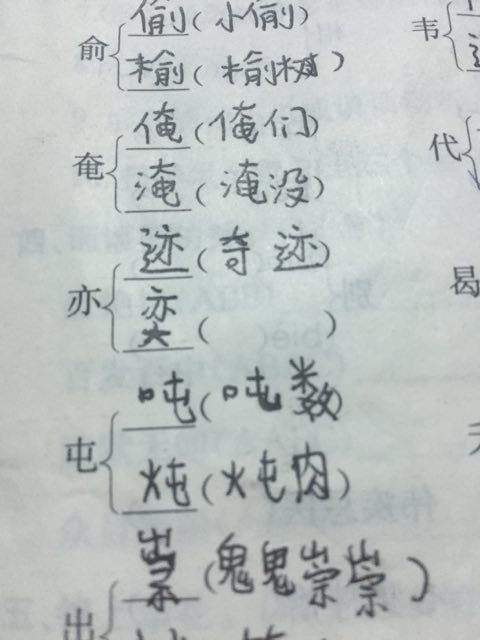 俞
偷(小偷)
榆(榆树)
奄
俺(俺们)
淹(淹没)
亦
迹(奇迹)
奕( )
屯
吨(吨数)
炖(炖肉)
出
祟(鬼鬼崇崇)
韦
代
曷